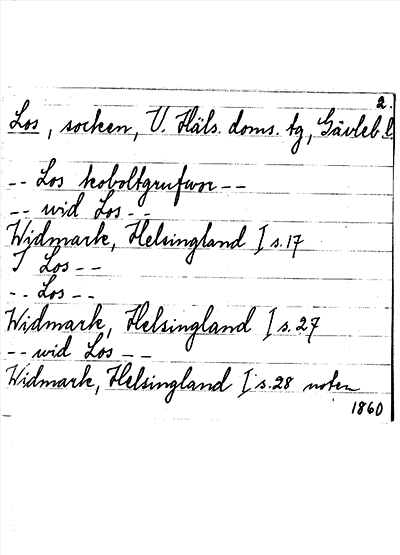 2.
Los, socken, V. Häls. doms. tg, Gävleb l.
-- Los koboltgrufvor --
-- wid Los --
Widmark, Helsingland I s. 17
I Los --
-- Los --
Widmark, Helsingland I s. 27
-- wid Los --
Widmark, Helsingland I s. 28 noten
1860